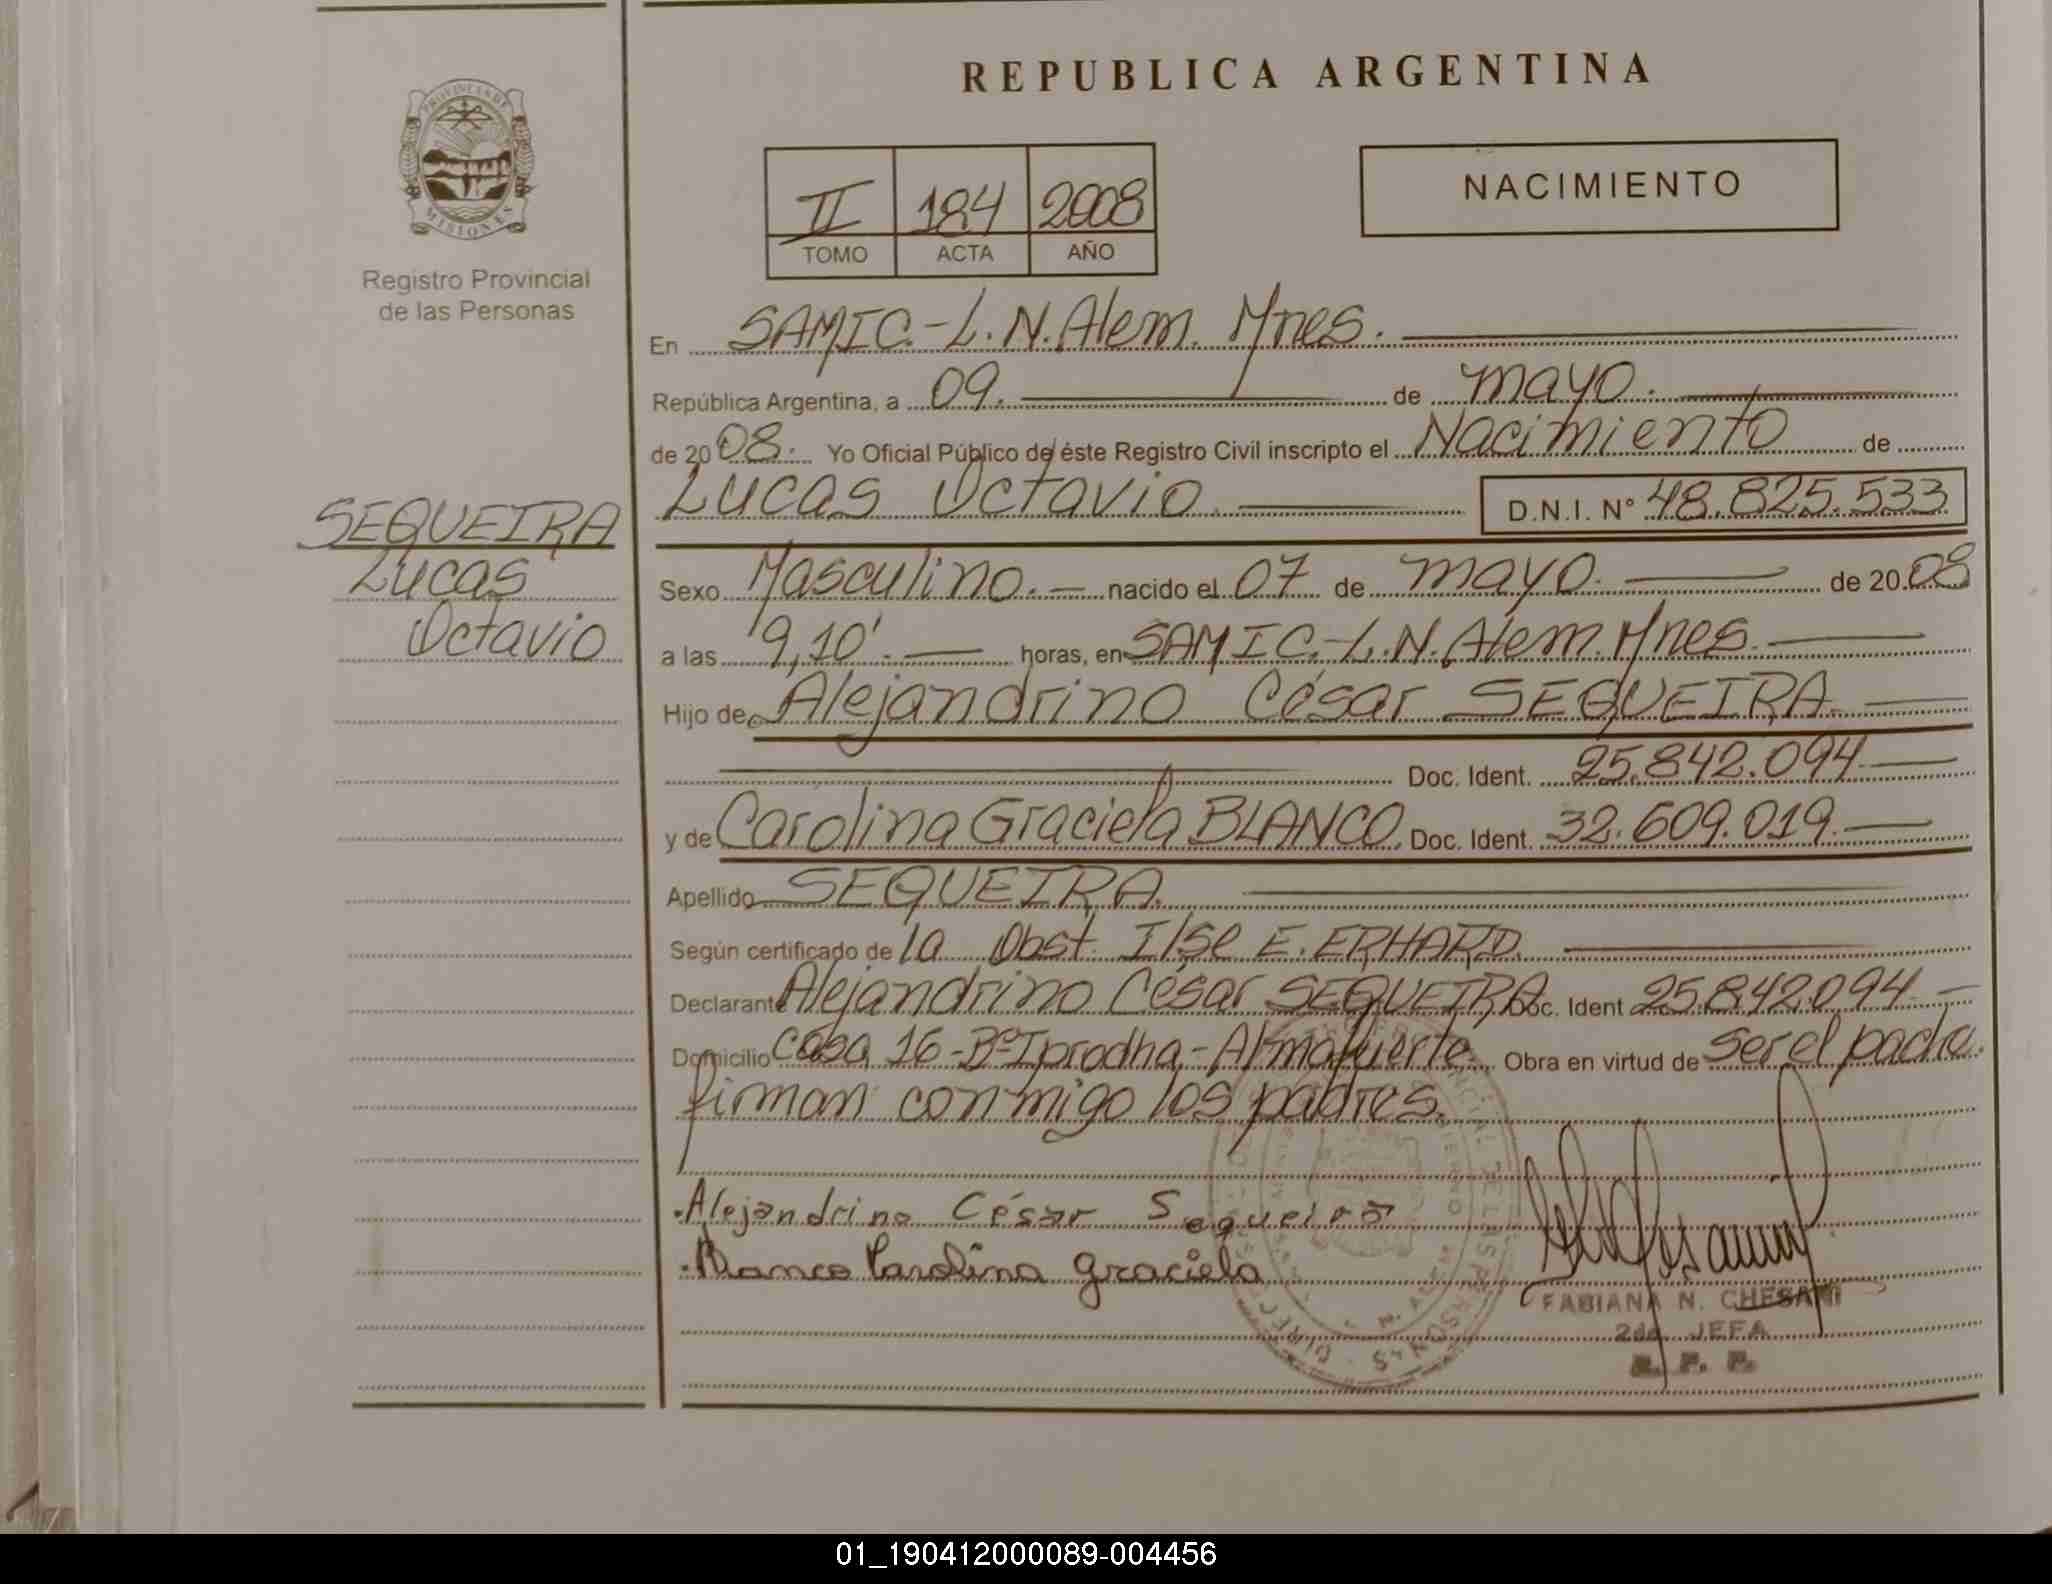 REPUBLICA ARGENTINA
PROVINCIA DE
MISIONES
Registro Provincial
de las Personas
II 184 2008
TOMO ACTA AÑO
NACIMIENTO
En SAMIC.-L.N.Alem. Mnes.
República Argentina, a 09. de mayo.
de 2008. Yo Oficial Público de éste Registro Civil inscripto el Nacimiento de
Lucas Octavio. D.N.I. N° 48.825.533
SEQUEIRA
Lucas
Octavio
Sexo Masculino. nacido el 07 de mayo. de 2008
a las 9,10'. horas, en SAMIC.-L.N.Alem.Mnes.
Hijo de Alejandrino César SEQUEIRA.
Doc. Ident. 25.842.094
y de Carolina Graciela BLANCO. Doc. Ident. 32.609.019.
Apellido SEQUEIRA.
Según certificado de la Obst. Ilse E. ERHARD.
Declarante Alejandrino César SEQUEIRA Doc. Ident 25.842.094
Domicilio Casa 16-B° Iprodha,- Almafuerte. Obra en virtud de ser el padre.
firman conmigo los padres.
.Alejandrino César Sequeira
.Blanco Carolina Graciela
FABIANA N. CHESANI
2da. JEFA
R. P. P.
01_190412000089-004456